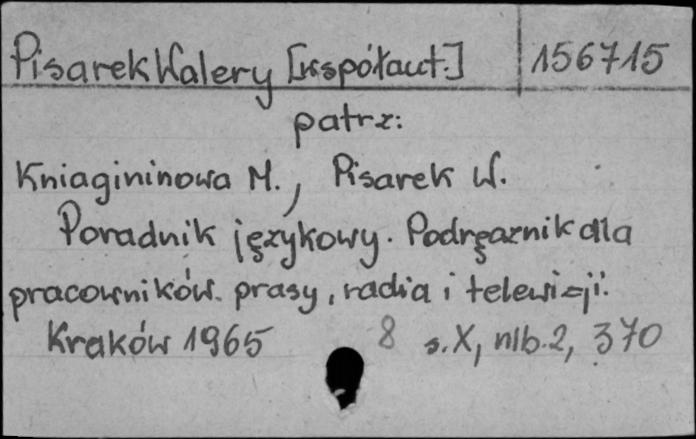 Pisarek Walery [współaut.] 156715
patrz:
Kniagininowa M., Pisarek W.
Poradnik językowy. Podręcznik dla
pracowników prasy, radia i telewizji.
Kraków 1965 8 s. X, nlb. 2, 370